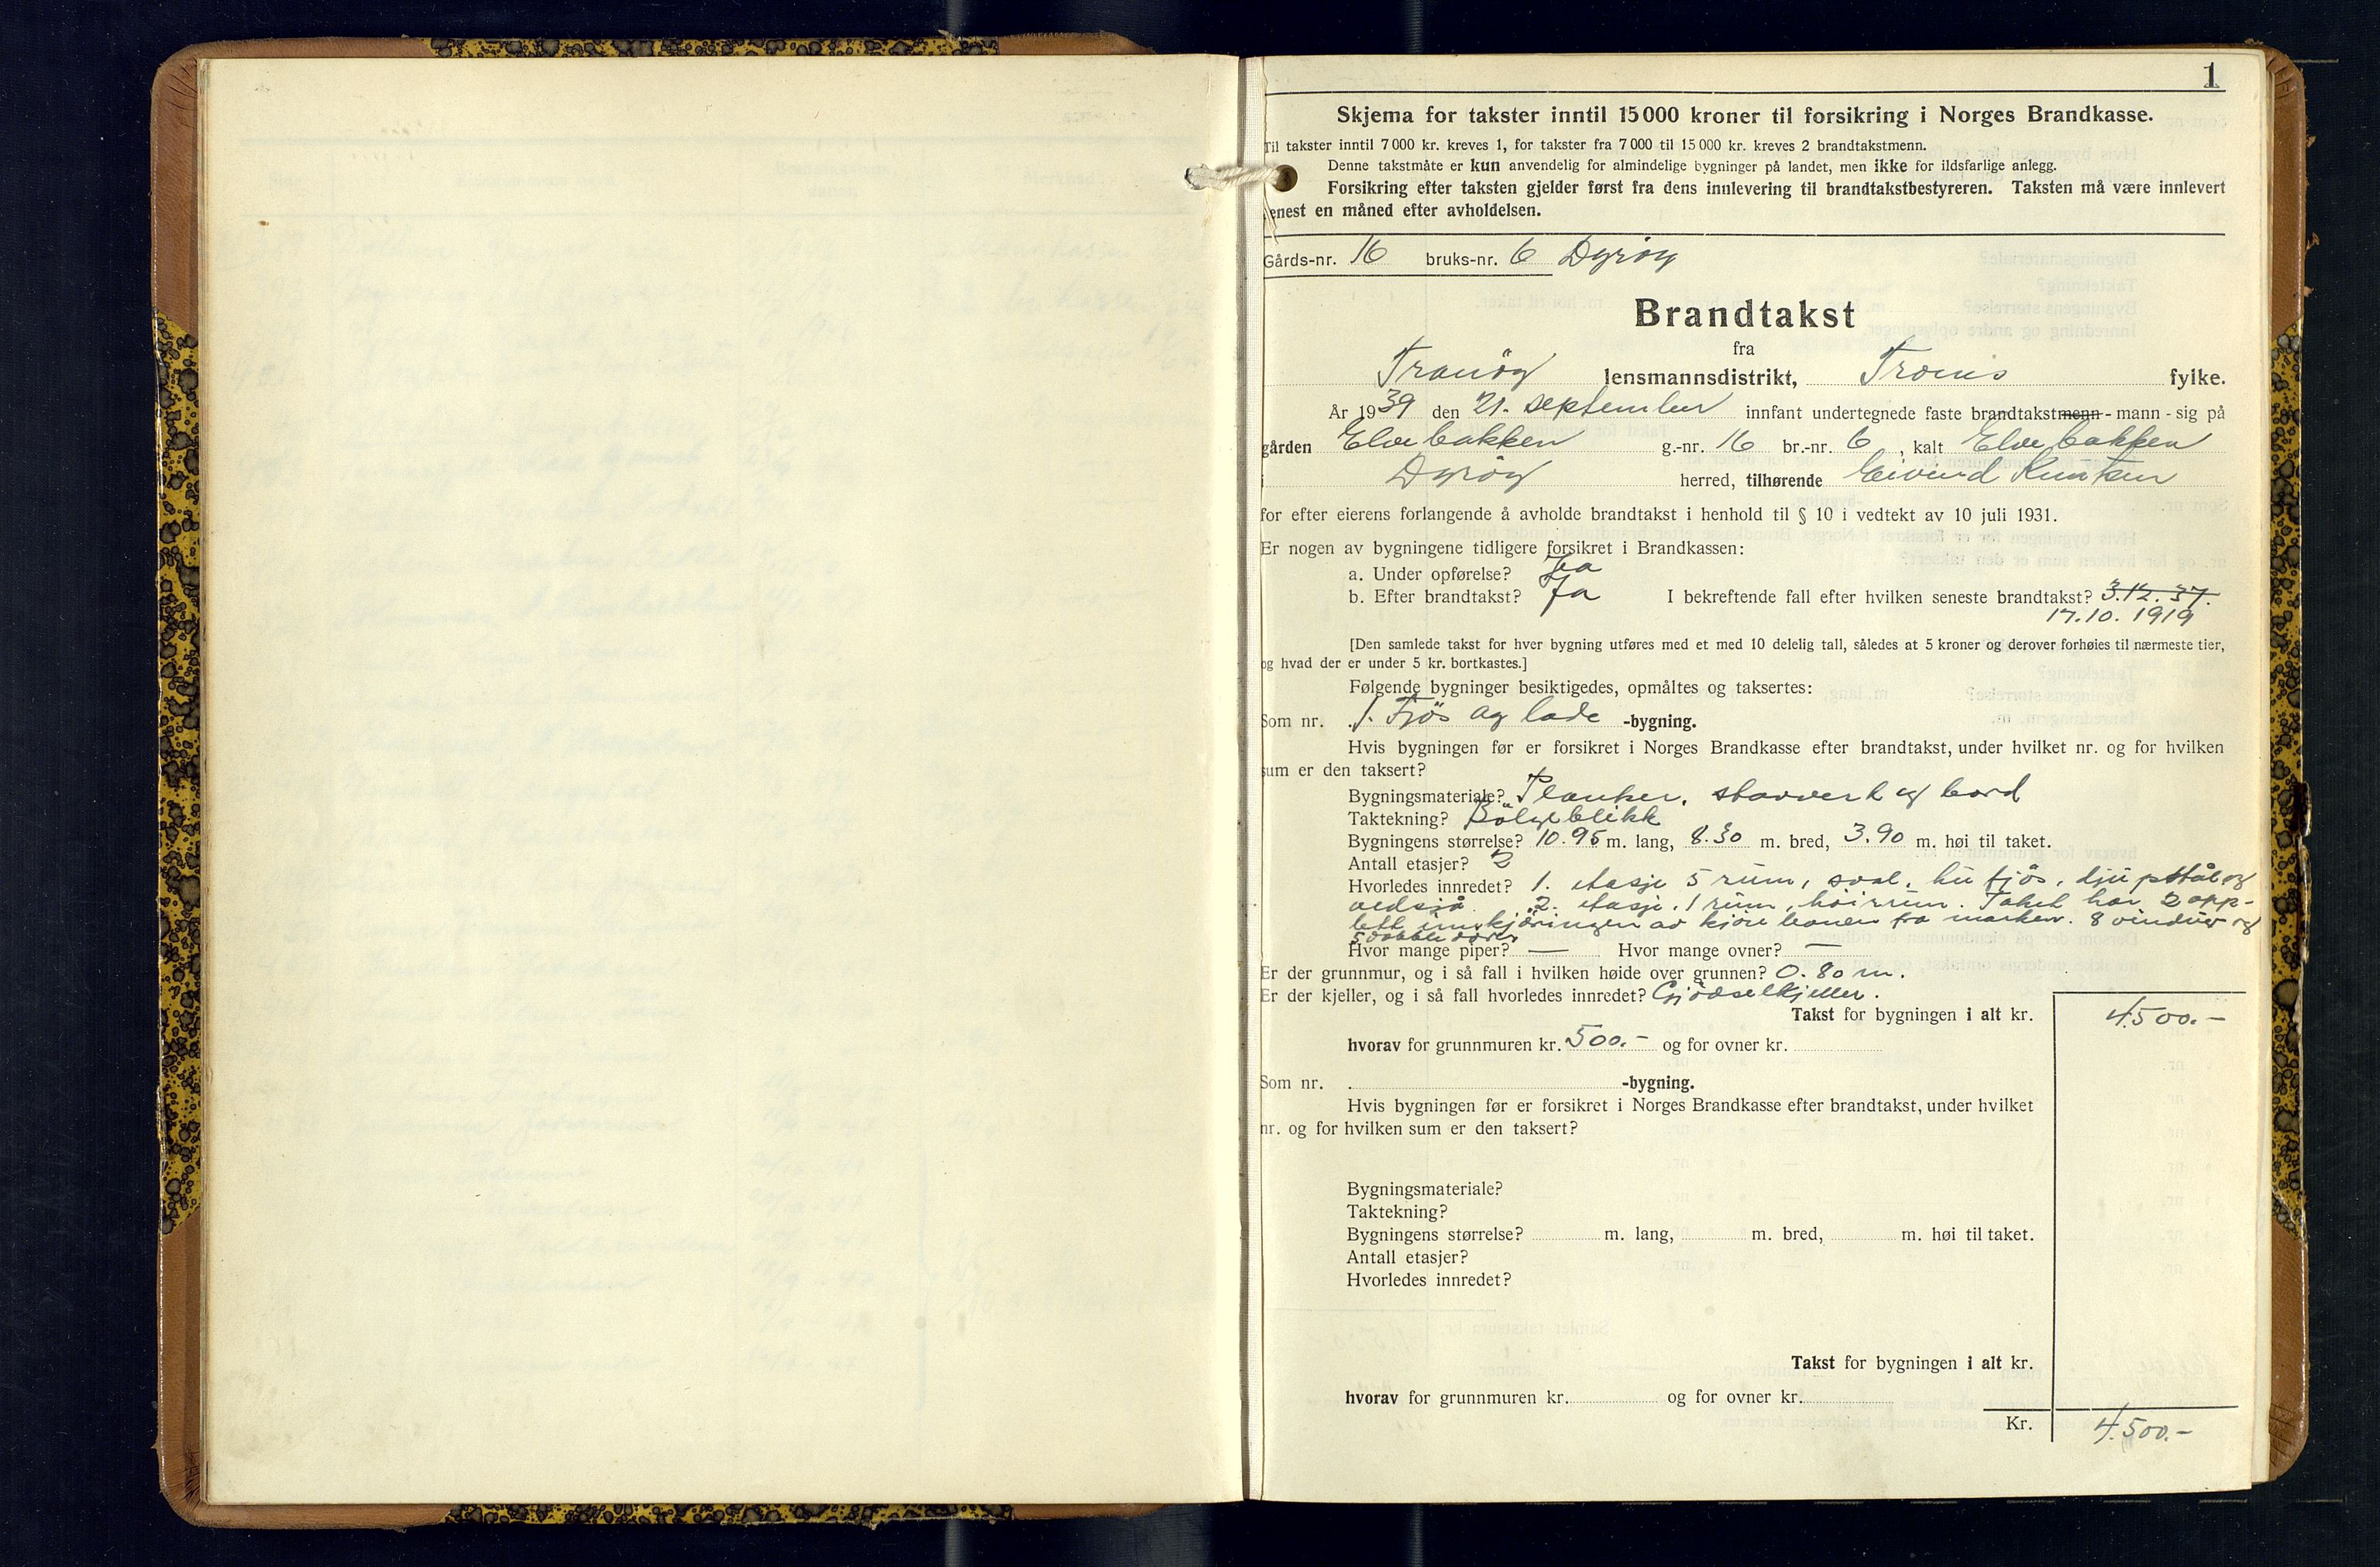 1
Skjema for takster inntil 15 000 kroner til forsikring i Norges Brandkasse.
Til takster inntil 7 000 kr. kreves 1, for takster fra 7 000 til 15 000 kr. kreves 2 brandtakstmenn.
Denne takstmåte er kun anvendelig for almindelige bygninger på landet, men ikke for ildsfarlige anlegg.
Forsikring efter taksten gjelder først fra dens innlevering til brandtakstbestyreren. Taksten må være innlevert
senest en måned efter avholdelsen.
Gårds-nr. 16 bruks-nr. 6 Dyröy
Brandtakst
fra
Tranöy lensmannsdistrikt, Troms fylke.
År 1939 den 21. september innfant undertegnede faste brandtakstmenn - mann - sig på
gården Elvebakken g.-nr. 16 br.-nr. 6, kalt Elvebakken
i Dyröy herred, tilhørende Eivind Knutsen
for efter eierens forlangende å avholde brandtakst i henhold til § 10 i vedtekt av 10 juli 1931.
Er nogen av bygningene tidligere forsikret i Brandkassen:
a. Under opførelse? Ja
b. Efter brandtakst? Ja I bekreftende fall efter hvilken seneste brandtakst? 3.12.37.
17.10.1919
[Den samlede takst for hver bygning utføres med et med 10 delelig tall, således at 5 kroner og derover forhøies til nærmeste tier,
og hvad der er under 5 kr. bortkastes.]
Følgende bygninger besiktigedes, opmåltes og taksertes:
Som nr. 1. Fjös og lade -bygning.
Hvis bygningen før er forsikret i Norges Brandkasse efter brandtakst, under hvilket nr. og for hvilken
sum er den taksert?
Bygningsmateriale? Planker, stavverk og bord
Taktekning? Bölgeblikk
Bygningens størrelse? 10.95 m. lang, 8.30 m. bred, 3.90 m. høi til taket.
Antall etasjer? 2
Hvorledes innredet? 1. etasje 5 rum, sval, kufjös, djupstål og
vedsjå. 2. etasje. 1 rum, höirum. Taket har 2 opp-
lett innkjöringen av kjörebanen fra marken. 8 vinduer og
5 dobble dörer
Hvor mange piper? — Hvor mange ovner? —
Er der grunnmur, og i så fall i hvilken høide over grunnen? 0.80 m.
Er der kjeller, og i så fall hvorledes innredet? Gjödselkjeller.
Takst for bygningen i alt kr. 4.500.-
hvorav for grunnmuren kr. 500.- og for ovner kr.
Som nr. . -bygning.
Hvis bygningen før er forsikret i Norges Brandkasse efter brandtakst, under hvilket
nr. og for hvilken sum er den taksert?
Bygningsmateriale?
Taktekning?
Bygningens størrelse? m. lang, m. bred, m. høi til taket.
Antall etasjer?
Hvorledes innredet?
Takst for bygningen i alt kr.
hvorav for grunnmuren kr. og for ovner kr.
Kr. 4.500.-